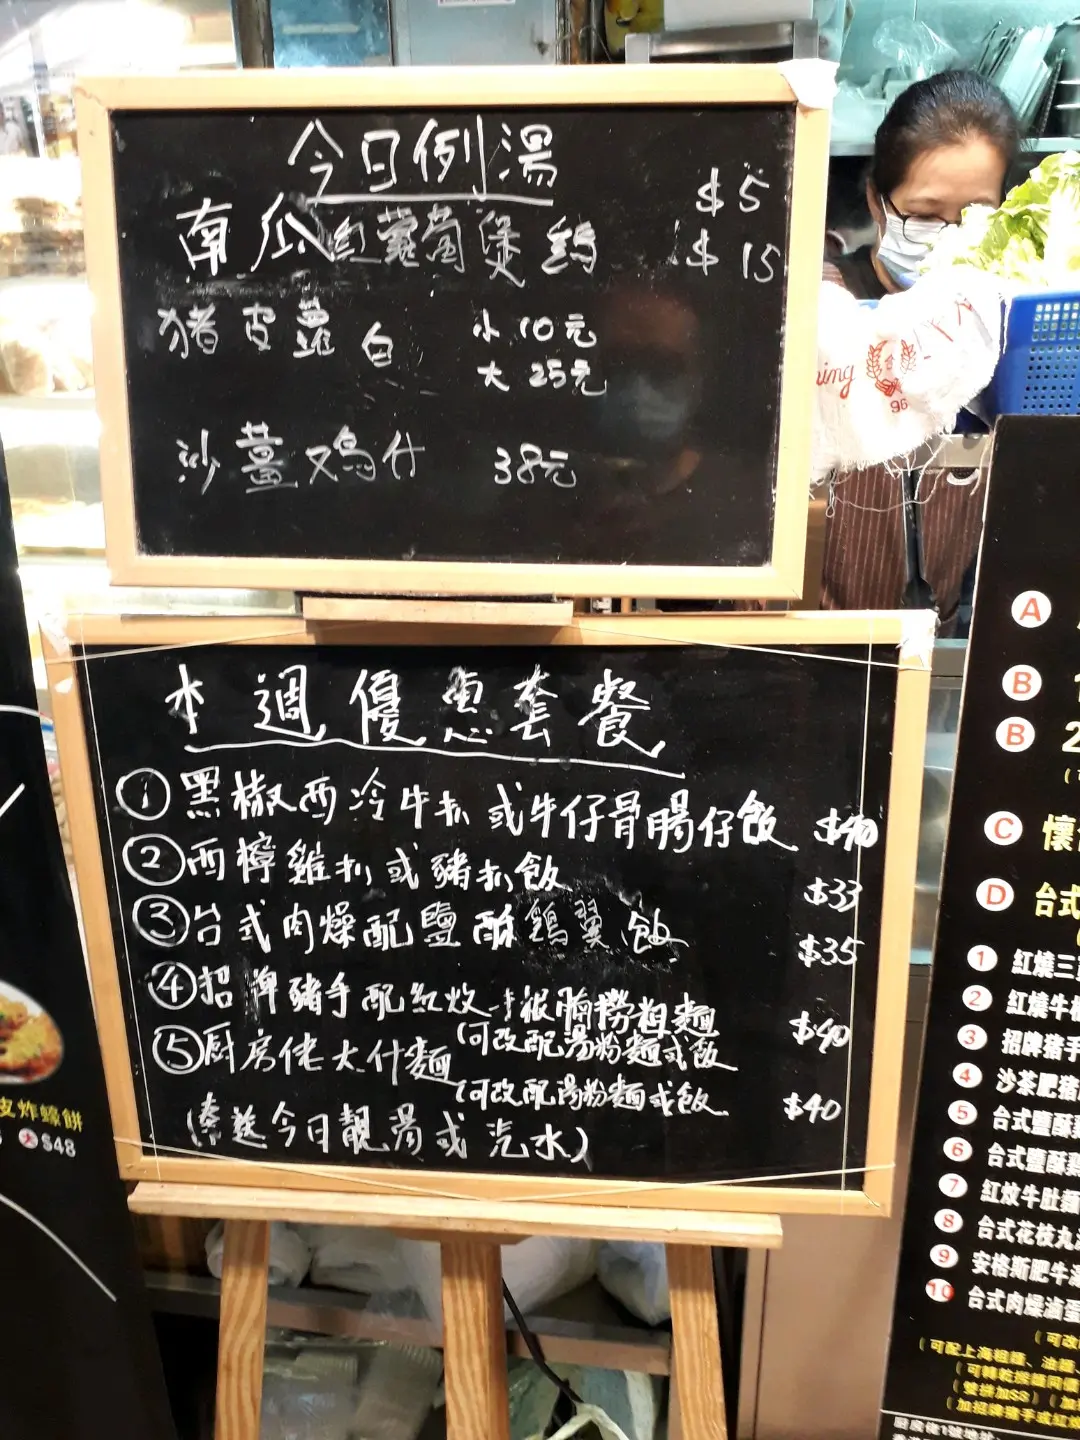 今日例湯
$5
南瓜紅蘿蔔煲鷄 $15
猪皮蘿白 小10元
大 25元
沙薑鸡什 38元
本週優惠套餐
① 黑椒西冷牛扒或牛仔骨腸仔飯 $40
② 西檸雞扒或豬扒飯 $33
③ 台式肉燥配鹽酥鷄翼飯 $35
④ 招牌豬手配紅炆牛根腩撈粗麵 $40
(可改配湯粉麵或飯
⑤ 厨房佬大什麵 $40
(可改配湯粉麵或飯
今日靚湯或汽水)
皮炸蠔餅
大 $48
96
A
B
B 2
C 懷
D 台式
1 紅燒三
2 紅燒牛
3 招牌豬手
4 沙茶肥豬
5 台式鹽酥
6 台式鹽酥雞
7 紅炆牛肚麵
8 台式花枝丸
9 安格斯肥牛
10 台式肉燥滷蛋
(可改
(可配上海粗麵、油麵
(加招牌豬手或紅
厨房佬1號地址: